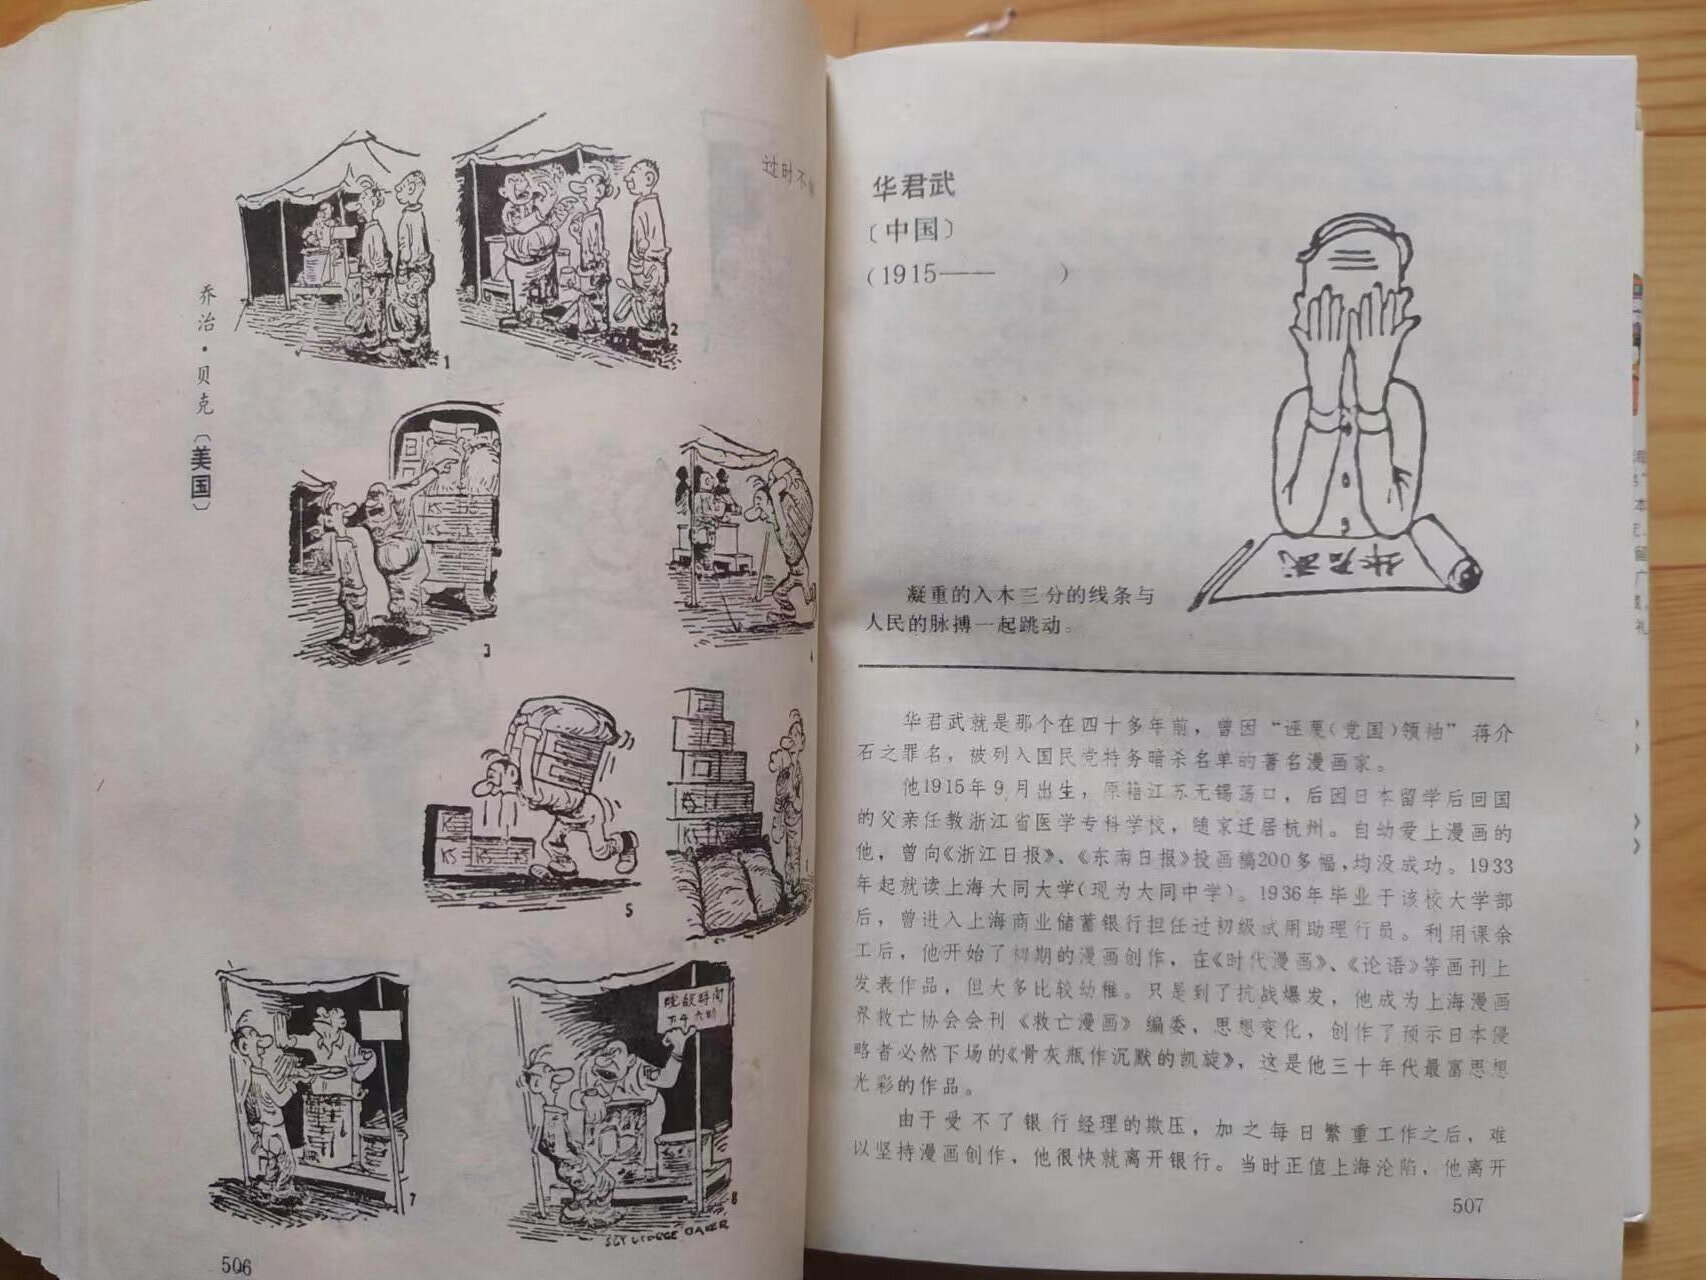 过时不
乔治·贝克〔美国〕
1
2
3
4
KS
5
7
晚饭时间
下午六时
8
SGT GEORGE BAKER
506
华君武
〔中国〕
(1915—— )
华君武
凝重的入木三分的线条与
人民的脉搏一起跳动。
华君武就是那个在四十多年前，曾因“诬蔑(党国)领袖”蒋介
石之罪名，被列入国民党特务暗杀名单的著名漫画家。
他1915年9月出生，原籍江苏无锡荡口，后因日本留学后回国
的父亲任教浙江省医学专科学校，随家迁居杭州。自幼爱上漫画的
他，曾向《浙江日报》、《东南日报》投画稿200多幅，均没成功。1933
年起就读上海大同大学(现为大同中学)。1936年毕业于该校大学部
后，曾进入上海商业储蓄银行担任过初级试用助理行员。利用课余
工后，他开始了初期的漫画创作，在《时代漫画》、《论语》等画刊上
发表作品，但大多比较幼稚。只是到了抗战爆发，他成为上海漫画
界救亡协会会刊《救亡漫画》编委，思想变化，创作了预示日本侵
略者必然下场的《骨灰瓶作沉默的凯旋》，这是他三十年代最富思想
光彩的作品。
由于受不了银行经理的欺压，加之每日繁重工作之后，难
以坚持漫画创作，他很快就离开银行。当时正值上海沦陷，他离开
507